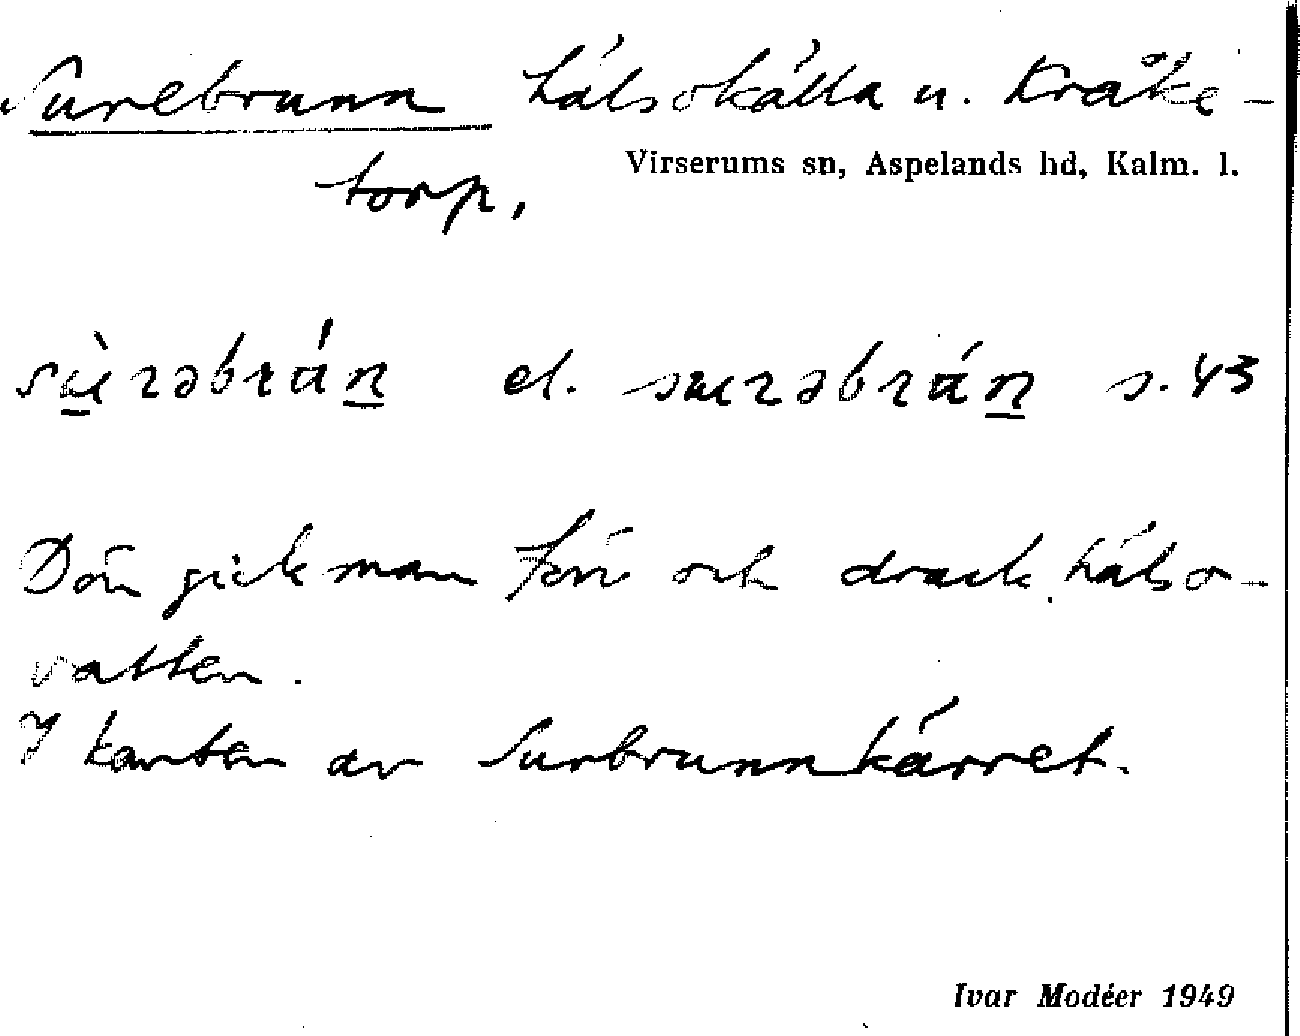 Surebrunn hälsokälla u. Kråke-
torp,
Virserums sn, Aspelands hd, Kalm. l.
sùrəbrán el. surəbrán s. 43
Där gick man förr och drack hälso-
vatten.
I kanten av Surbrunnkärret.
Ivar Modéer 1949